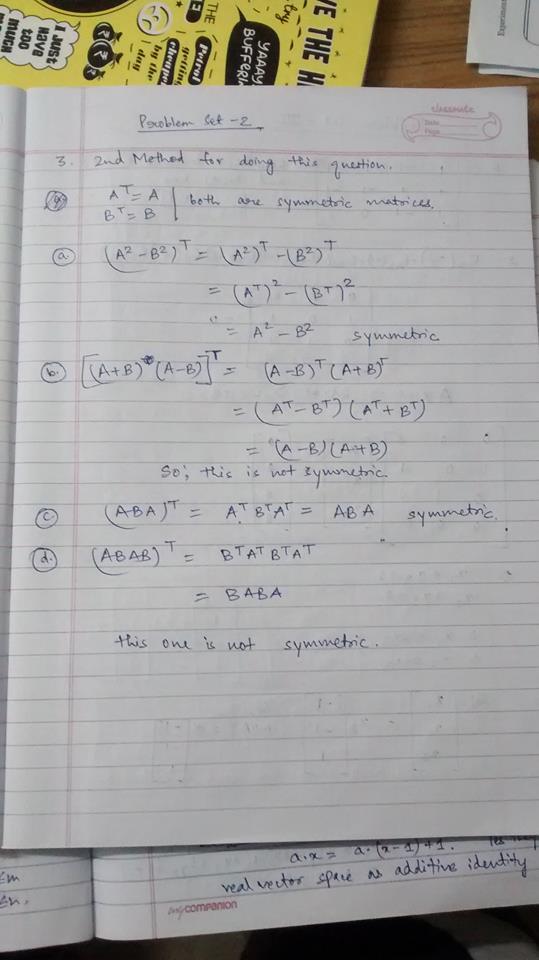 I JUST
HAVE
TOO
MUCH
THE
Petrol
getting
cheaper
by the
day
YAAAY
BUFFERIN
VE THE H
try
classmate
Date
Page
Problem Set -2
3. 2nd Method for doing this question.
Aᵀ = A
Bᵀ = B | both are symmetric matrices.
a. (A² - B²)ᵀ = (A²)ᵀ - (B²)ᵀ
= (Aᵀ)² - (Bᵀ)²
= A² - B² symmetric
b. [(A+B) (A-B)]ᵀ = (A-B)ᵀ (A+B)ᵀ
= (Aᵀ - Bᵀ) (Aᵀ + Bᵀ)
= (A-B) (A+B)
So; this is not symmetric.
c. (ABA)ᵀ = AᵀBᵀAᵀ = ABA symmetric.
d. (ABAB)ᵀ = BᵀAᵀBᵀAᵀ
= BABA
this one is not symmetric.
a.x = a.(x-1)+1.
real vector space as additive identity
my companion